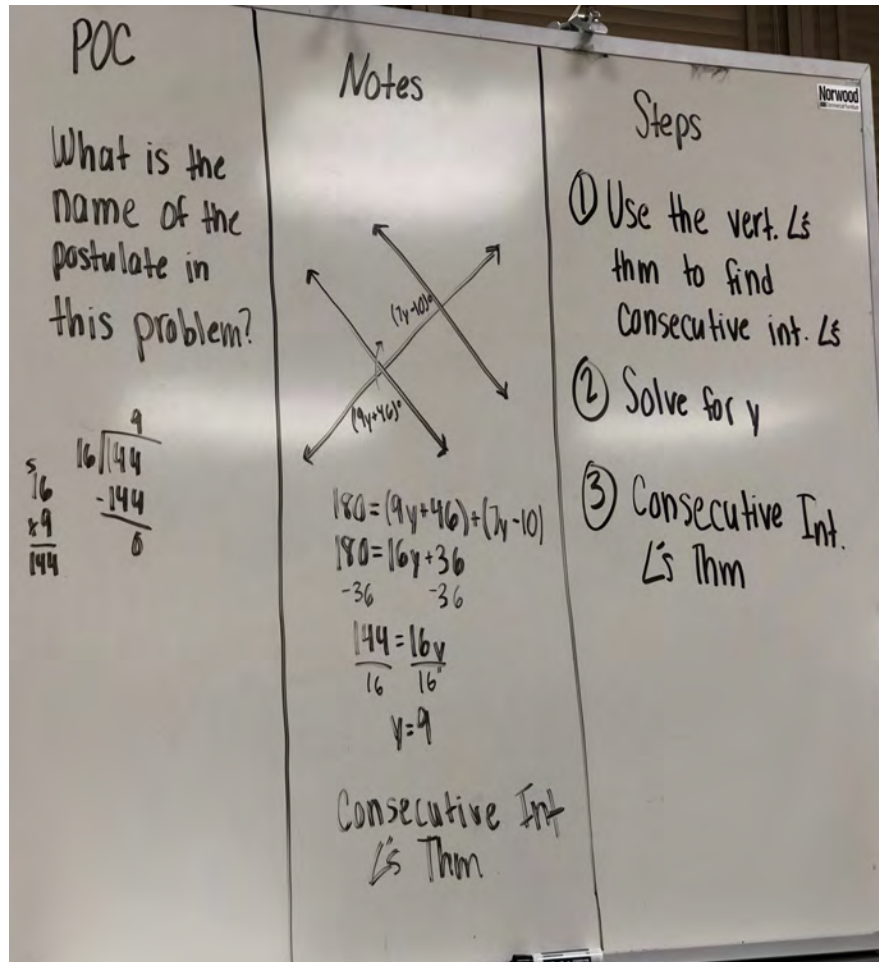 POC
What is the
name of the
postulate in
this problem?
9
16)144
-144
0
5
16
x9
144
Notes
(7y-10)°
(9y+46)°
180=(9y+46)+(7y-10)
180=16y+36
-36 -36
144=16y
16 16
y=9
Consecutive Int
∠'s Thm
Norwood
Steps
① Use the vert. ∠'s
thm to find
consecutive int. ∠'s
② Solve for y
③ Consecutive Int.
∠'s Thm